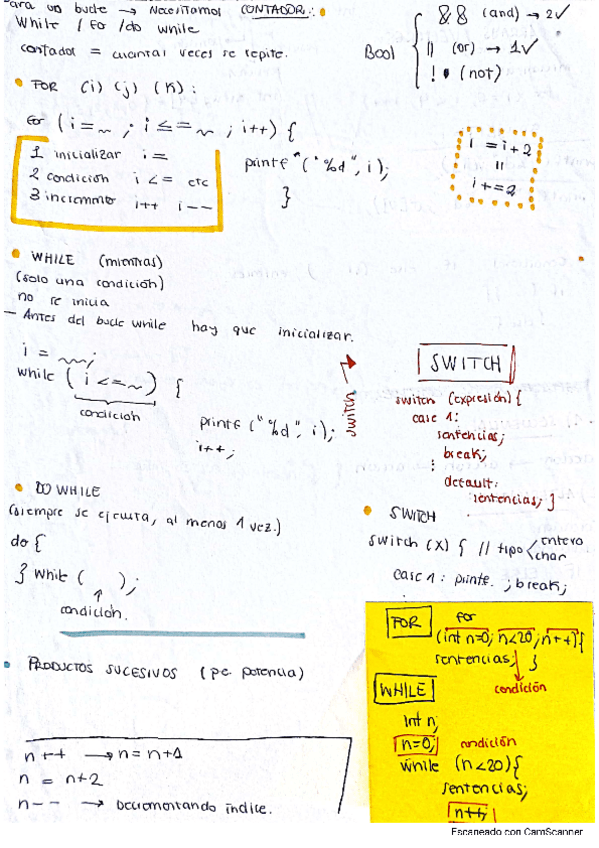 ara un bucle → Necesitamos CONTADOR:
While / For / do while
contador = cuantas veces se repite.
Bool { && (and) → 2✓
|| (or) → 1✓
! (not)
FOR (i) (j) (k) :
for (i=~ ; i<=~ ; i++) {
1 inicializar i =
2 condición i <= etc
3 incremento i++ i--
printf ("%d", i);
}
i = i+2
||
i+=2
WHILE (mientras)
(solo una condición)
no se inicia
— Antes del bucle while hay que inicializar.
i = ~;
while ( i<=~ ) {
condición
printf ("%d", i);
i++;
switch
SWITCH
switch (expresión) {
case 1:
sentencias;
break;
:
default:
sentencias; }
DO WHILE
(siempre se ejecuta, al menos 1 vez.)
do {
} while ( );
↑
condición.
SWITCH
switch (X) { // tipo < entero
char
case 1: printf. ; break;
:
PRODUCTOS SUCESIVOS (pe. potencia)
n++ → n = n+1
n = n+2
n-- → Decrementando índice.
FOR for
(int n=0; n<20; n++) {
sentencias; }
condición
WHILE
int n;
n=0; condición
while (n<20) {
sentencias;
n++;
Escaneado con CamScanner